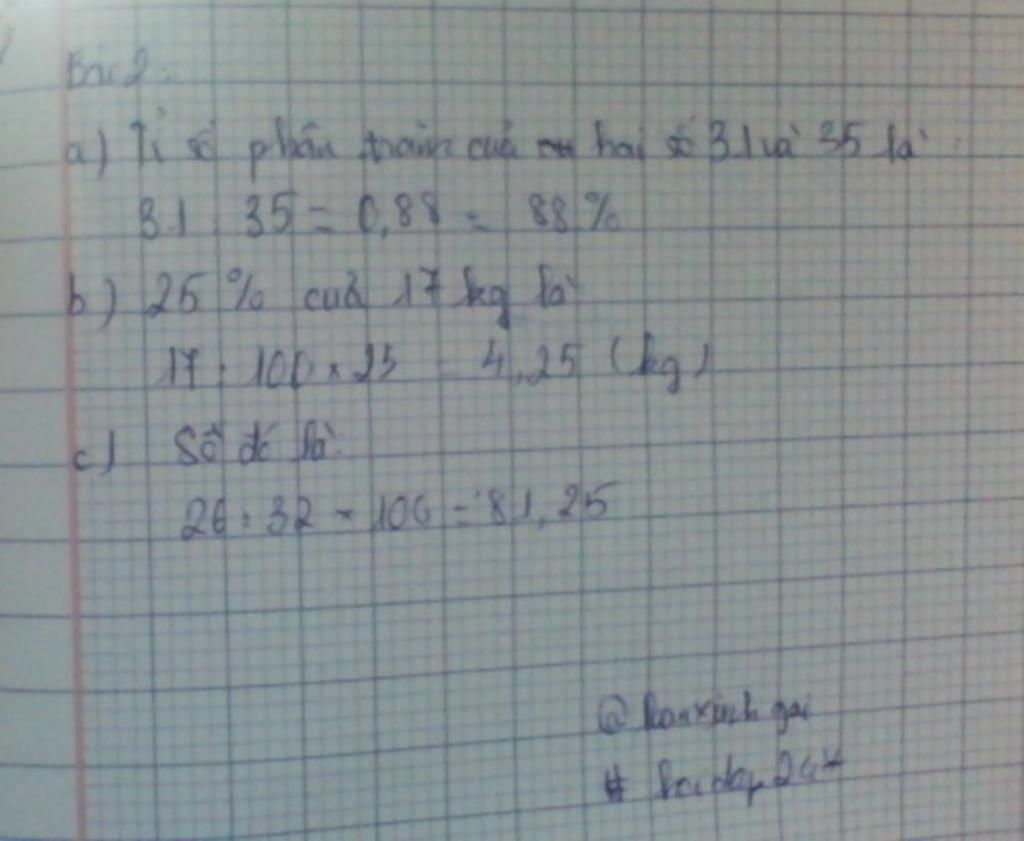 Bài 2:
a) Tỉ số phần trăm của hai số 31 và 35 là:
31 : 35 = 0,88 = 88%
b) 25% của 17 kg là
17 : 100 x 25 = 4,25 (kg)
c) Số đó là:
26 : 32 x 100 = 81,25
@ xinh gai
# hoidap247